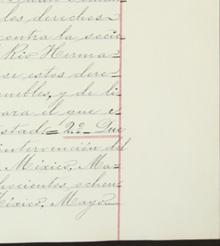 los derechos
contra la socie
Rio Herma=
se estos dere=
muebles, y de li
para el que e
stad! = 2º_ Que
intervención del
México. Ma=
hocientos ochen
México. Mayo